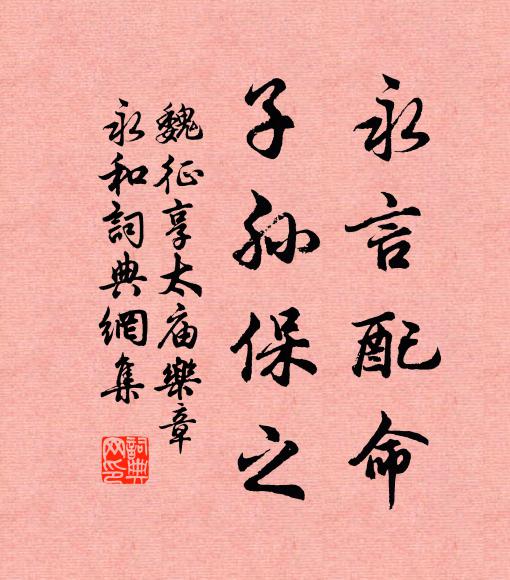 永言配命
子孙保之
魏征享太庙樂章
永和詞典網集
詞典
网印